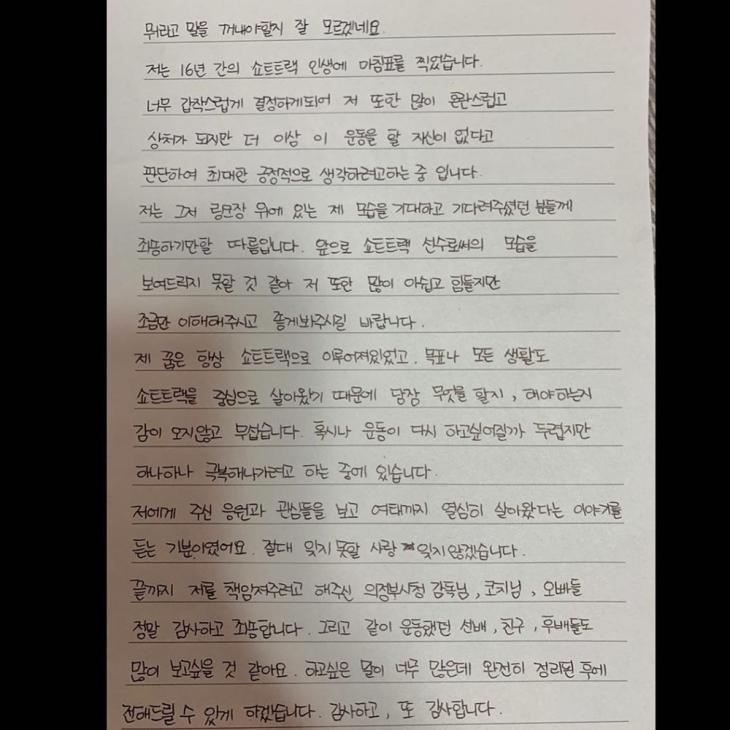 뭐라고 말을 꺼내야할지 잘 모르겠네요.
저는 16년 간의 쇼트트랙 인생에 마침표를 찍었습니다.
너무 갑작스럽게 결정하게되어 저 또한 많이 혼란스럽고
상처가 되지만 더 이상 이 운동을 할 자신이 없다고
판단하여 최대한 긍정적으로 생각하려고하는 중 입니다.
저는 그저 링크장 위에 있는 제 모습을 기대하고 기다려주셨던 분들께
죄송하기만할 따름입니다. 앞으로 쇼트트랙 선수로써의 모습을
보여드리지 못할 것 같아 저 또한 많이 아쉽고 힘들지만
조금만 이해해주시고 좋게봐주시길 바랍니다.
제 꿈은 항상 쇼트트랙으로 이루어져있었고. 목표나 모든 생활도
쇼트트랙을 중심으로 살아왔기 때문에 당장 무엇을 할지, 해야하는지
감이 오지않고 무섭습니다. 혹시나 운동이 다시 하고싶어질까 두렵지만
하나하나 극복해나가려고 하는 중에 있습니다.
저에게 주신 응원과 관심들을 보고 여태까지 열심히 살아왔다는 이야기를
듣는 기분이였어요. 절대 잊지 못할 사랑 잊지않겠습니다.
끝까지 저를 책암져주려고 해주신 의정부시청 감독님, 코치님, 오빠들
정말 감사하고 죄송합니다. 그리고 같이 운동했던 선배, 친구, 후배들도
많이 보고싶을 것 같아요. 하고싶은 말이 너무 많은데 완전히 정리된 후에
전해드릴 수 있게 하겠습니다. 감사하고, 또 감사합니다.